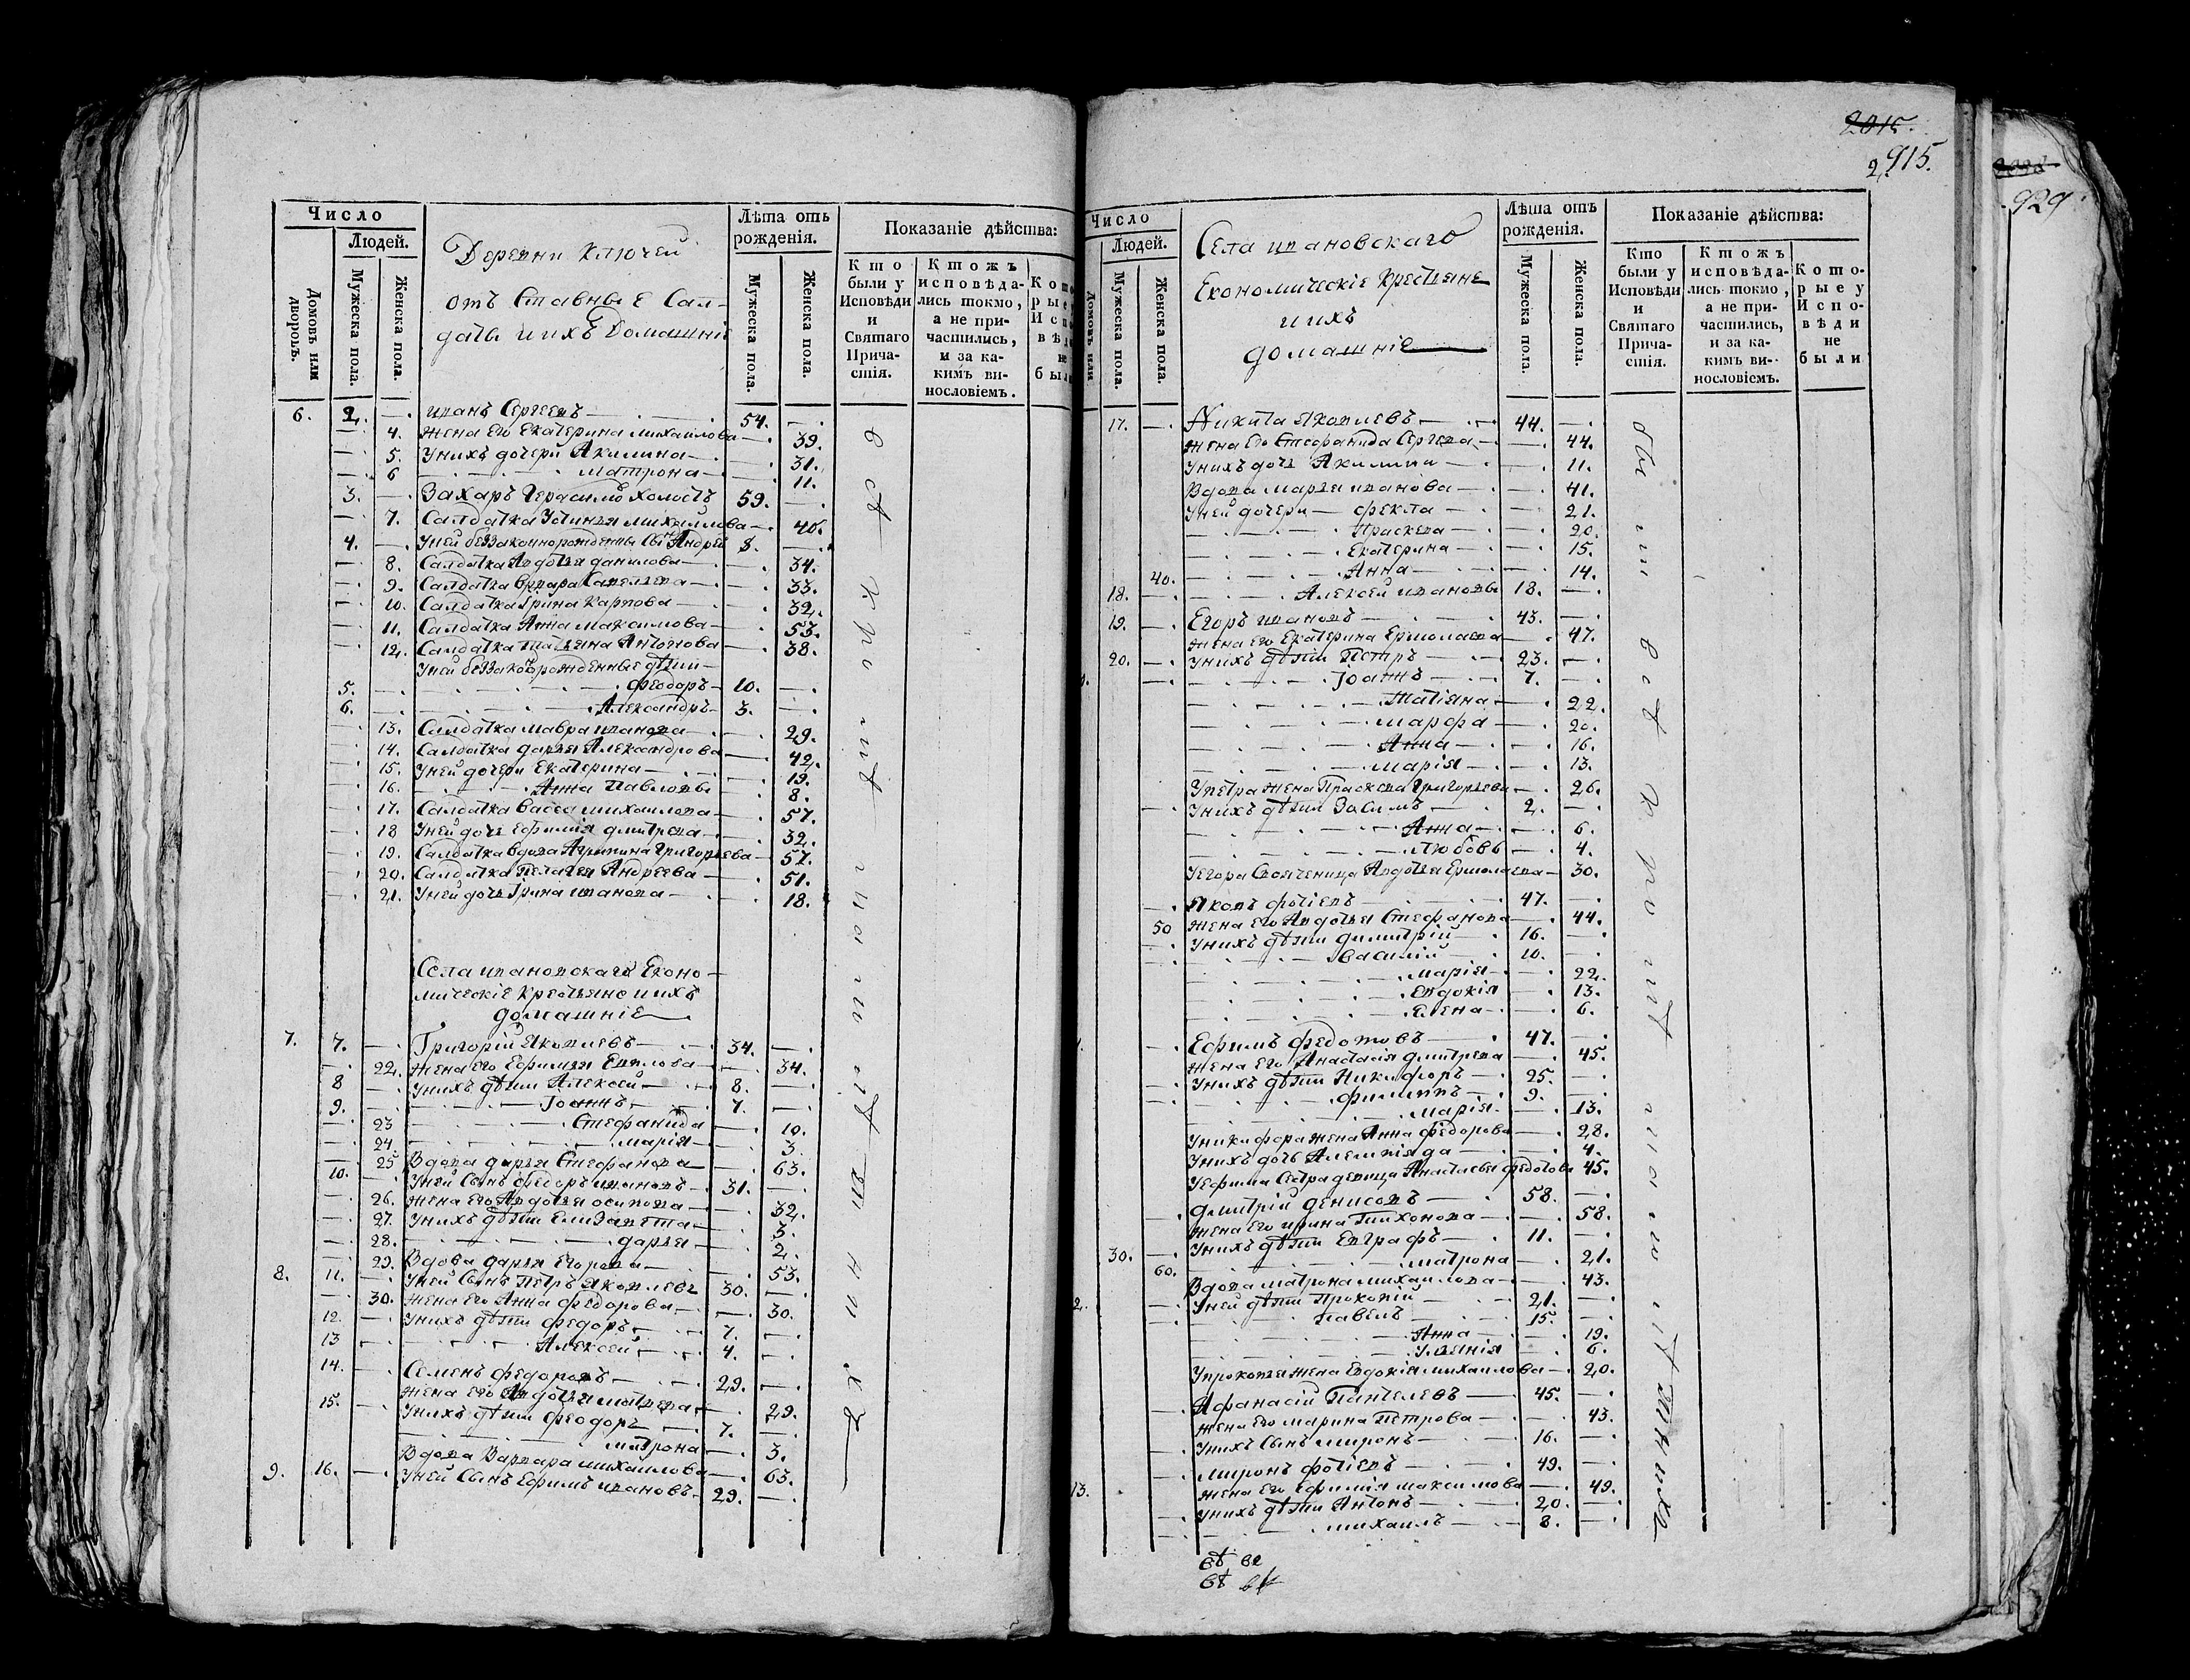 2015.
2,915.
929
Число
Людей.
Домовъ или дворовъ.
Мужеска пола.
Женска пола.
Деревни Ключей
отъ Ставные Сал-
даты ихъ Домашніе
Лѣта отъ рожденія.
Мужеска пола.
Женска пола.
Показаніе дѣйства:
Кто были у Исповѣди и Святаго Прича-стія.
Ктожъ исповѣда-лись токмо, а не при-частились, и за ка-кимъ ви-нословіемъ.
6. 2. —. иванъ Сергеевъ 54. —.
—. 4. жена Его Екатерина михаилова —. 39.
—. 5. Унихъ дочери Акилина —. 31.
—. 6 матрона —. 11.
3. —. Захаръ Герасимо холостъ 59. —.
—. 7. Салдатка Устинья михаилова —. 40.
4. —. Уней беззаконнорожденны Сынъ Андреи 8. —.
—. 8. Салдатка Авдотья данилова —. 34.
—. 9. Салдатка Савельева —. 33.
—. 10. Салдатка Ірина Карпова —. 32.
—. 11. Салдатка Анна максимова —. 53.
—. 12. Салдатка татьяна Антонова —. 38.
Уней дѣти
5. —. феодоръ 10. —.
6. —. Александръ 3. —.
—. 13. Салдатка мавра иванова —. 29.
—. 14. Салдатка дарья Александрова —. 42.
—. 15. Уней дочери Екатерина —. 19.
—. 16. Анна Павловы —. 8.
—. 17. Салдатка васса михаилова —. 57.
—. 18 Уней дочь Ефимія дмитрева —. 32.
—. 19. Салдатка вдова Агрипина Григорьева —. 57.
—. 20. Салдатка Пелагея Андреева —. 51.
—. 21. Уней дочь Ірина иванова —. 18.
Села ивановскаго Еконо-
мическіе крестьяне ихъ
домашніе
7. 7. —. Григорій Яковлевъ 34. —.
—. 22. жена Его Ефимья —. 34.
8 —. Унихъ дѣти Алексеи 8. —.
9. —. Іоаннъ 7. —.
—. 23 Стефанида —. 10.
—. 24. марія —. 3.
—. 25 Вдова дарья Стефанова —. 63.
10. —. Уней Сынъ федоръ ивановъ 31. —.
—. 26. жена Его Авдотья осипова —. 32.
—. 27. Унихъ дѣти Елизавета —. 3.
—. 28. дарья —. 2.
—. 29. Вдова дарья Егорова —. 53.
8. 11. —. Уней Сынъ Петръ Яковлевъ 30. —.
—. 30. жена Его Анна федорова —. 30.
12. —. Унихъ дѣти федоръ 7. —.
13 —. Алексеи 4. —.
14. —. Семенъ федоровъ 29. —.
жена Его Авдотья матвева —. 29.
15. —. Унихъ дѣти феодоръ 7. —.
матрона —. 3.
Вдова Варвара михаилова —. 63.
9. 16. —. Уней Сынъ Ефимъ ивановъ 29. —.
Число
Людей.
Домовъ или
Мужеска пола.
Женска пола.
Села ивановскаго
Економическіе крестьяне
ихъ
домашніе
Лѣта отъ рожденія.
Мужеска пола.
Женска пола.
Показаніе дѣйства:
Кто были у Исповѣди и Святаго Прича-стія.
Ктожъ исповѣда-лись токмо, а не при-частились, и за ка-кимъ ви-нословіемъ.
Кото-рые у Испо-вѣди не были
17. —. Никита Яковлевъ 44. —.
жена Его Стефанида Сергева —. 44.
Унихъ дочь Акилина —. 11.
Вдова марья иванова —. 41.
Уней дочери фекла —. 21.
Праскева —. 20.
Екатерина —. 15.
40. Анна —. 14.
18. —. Алексеи ивановы 18. —.
19. —. Егоръ ивановъ 43. —.
жена Его Екатерина Ермолаева —. 47.
20. —. Унихъ дѣти Петръ 23. —.
—. Іоаннъ 7. —.
Татіяна —. 22.
марфа —. 20.
Анна —. 16.
марія —. 13.
Упетра жена Праскева Григорьева —. 26.
—. Унихъ дѣти 2. —.
Анна —. 6.
Любовь —. 4.
Уегора Свояченица Авдотья Ермолаева —. 30.
—. Яковъ фотіевъ 47. —.
50 жена Его Авдотья Стефанова —. 44.
—. Унихъ дѣти димитрій 16. —.
—. василій 10. —.
марія —. 22.
Евдокія —. 13.
Елена —. 6.
—. Ефимъ федотовъ 47. —.
жена Его Анастасія дмитрева —. 45.
—. Унихъ дѣти Никифоръ 25. —.
—. филиппъ 9. —.
марія —. 13.
Уникифора жена Анна федорова —. 28.
Унихъ дочь —. 4.
Уефима Сестра девица Анастасья федотова 45.
—. дмитрій денисовъ 58. —.
жена Его ирина Тихонова —. 58.
30. —. Унихъ дѣти Евграфъ 11. —.
60. матрона —. 21.
Вдова матрона михаилова —. 43.
—. Уней дѣти Прокопій 21. —.
—. павелъ 15. —.
Анна —. 19.
—. 6.
Упрокопья жена Евдокія михаилова —. 20.
—. Афанасій Пантелевъ 45. —.
жена Его марина Петрова —. 43.
—. Унихъ Сынъ миронъ 16. —.
—. миронъ фотіевъ 49. —.
13. жена Его Ефимія максимова —. 49.
—. Унихъ дѣти Антонъ 20. —.
—. михаилъ 8. —.